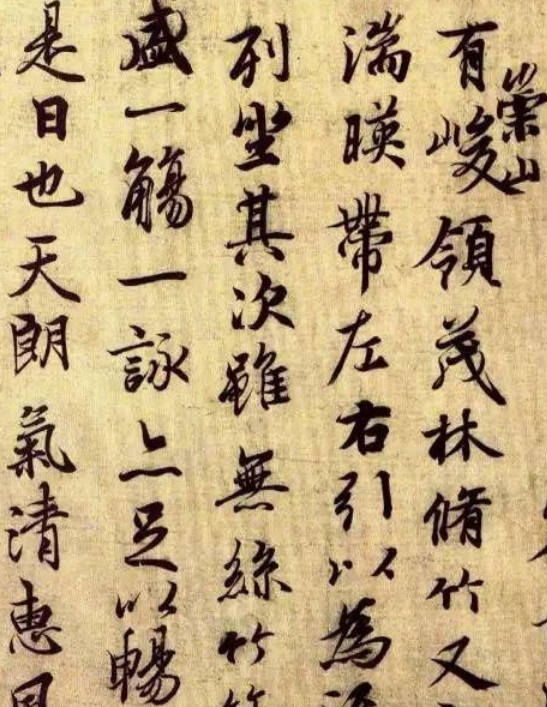 有崇山峻領茂林脩竹又
湍暎帶左右引以為
列坐其次雖無絲竹
盛一觴一詠亦足以暢
是日也天朗氣清惠風